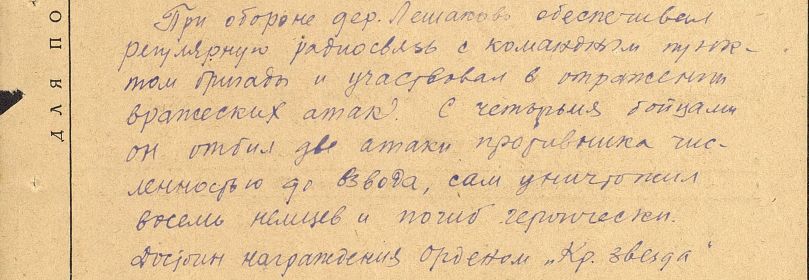 При обороне дер. Лешаково обеспечивал
регулярную радиосвязь с командным пунк-
том бригады и участвовал в отражении
вражеских атак. С четырьмя бойцами
он отбил две атаки противника чис-
ленностью до взвода, сам уничтожил
восемь немцев и погиб героически.
Достоин награждения Орденом „Кр. звезда"
ДЛЯ ПО